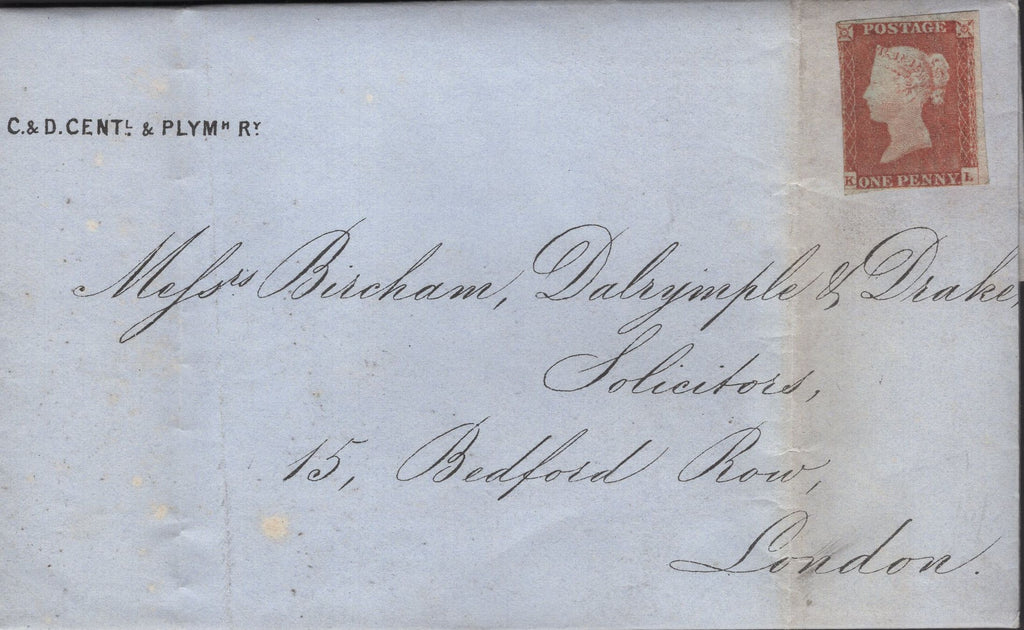 POSTAGE
C. & D. CENTL & PLYMH RY
K ONE PENNY L
Messrs Bircham, Dalrymple & Drake,
Solicitors,
15, Bedford Row,
London.